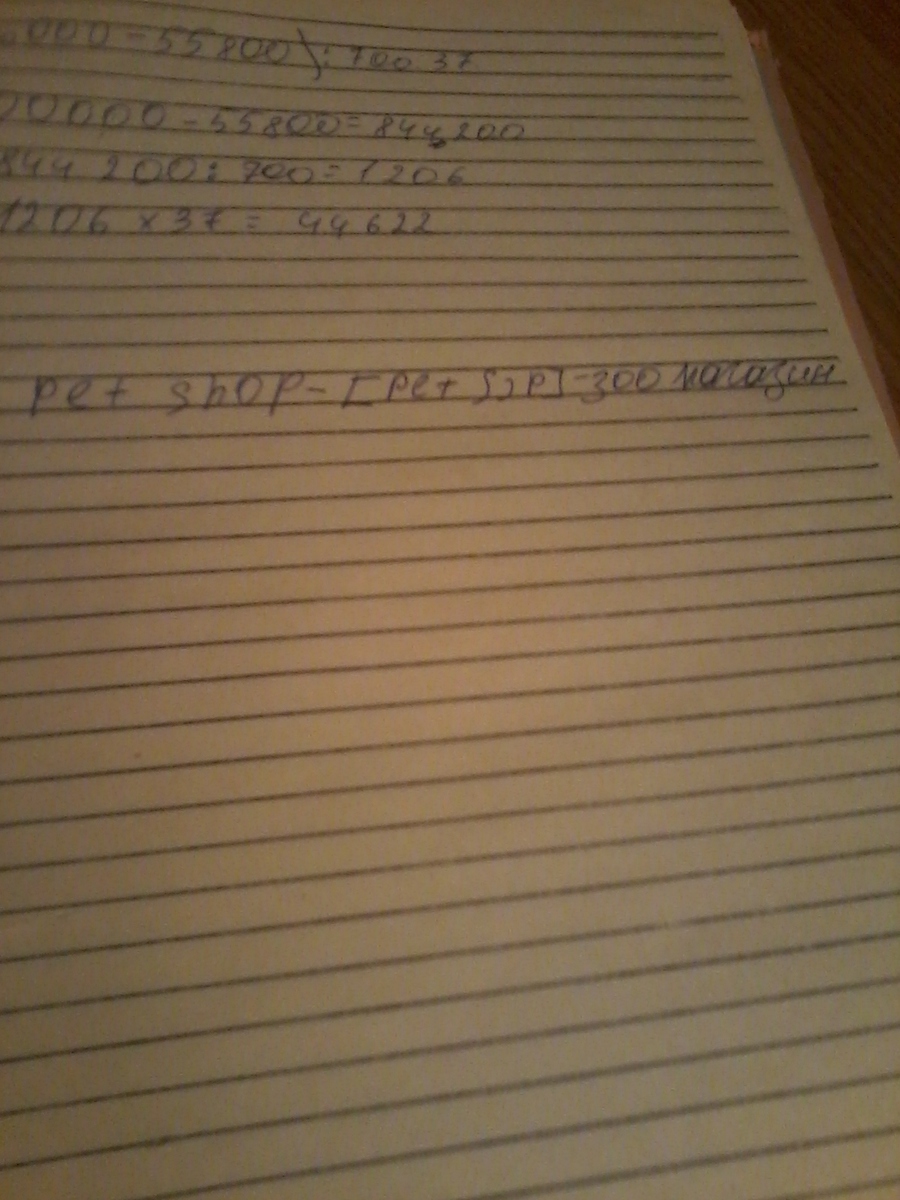 000 - 55 800) : 700 37
00000 - 55800 = 844200
844 200 : 700 = 1206
1206 × 37 = 44622
pet shop - [pet ʃɔp] - зоо магазин